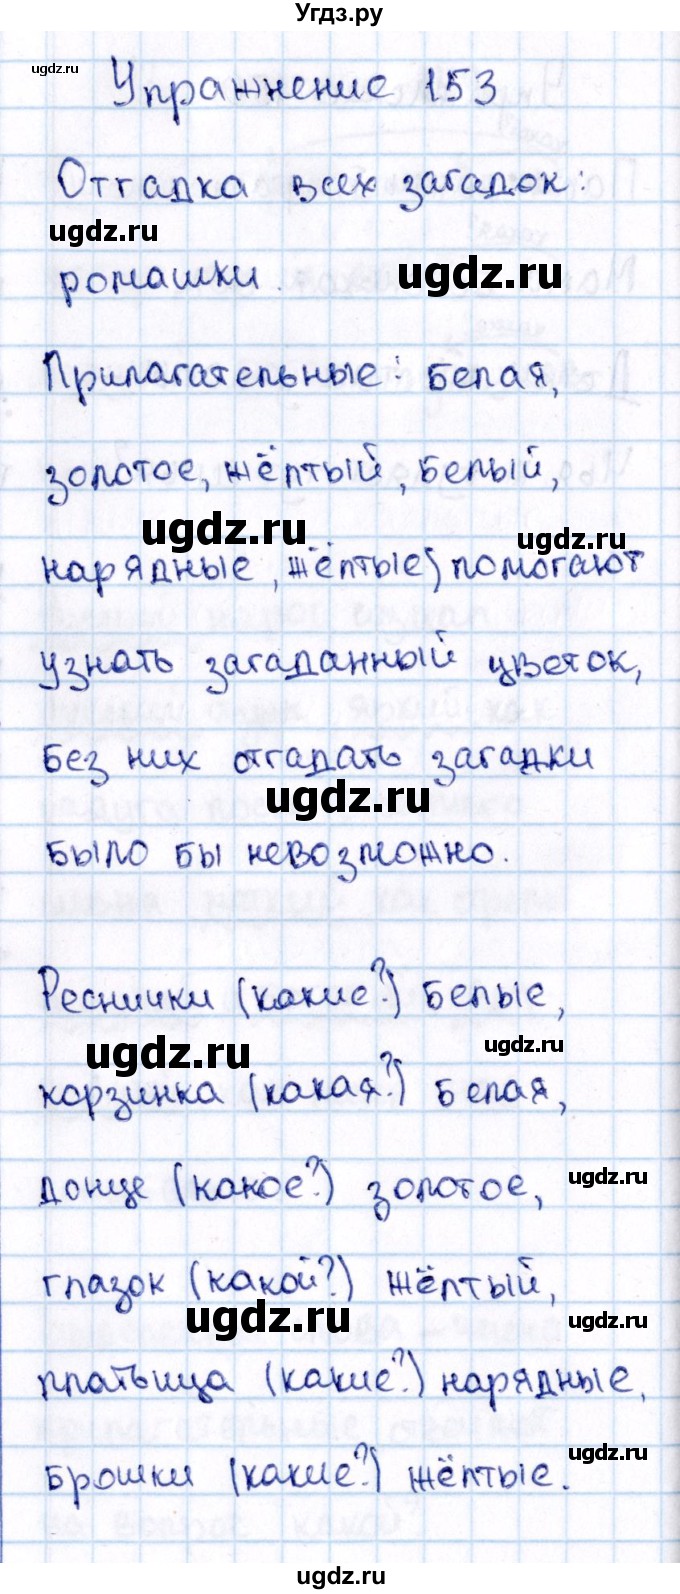 Угдз.ру
ugdz.ru
Упражнение 153
Отгадка всех загадок:
ugdz.ru
ugdz.ru
ромашки.
Прилагательные: белая,
золотое, жёлтый, белый,
ugdz.ru
ugdz.ru
нарядные, жёлтые) помогают
узнать загаданный цветок,
без них отгадать загадки
ugdz.ru
было бы невозможно.
Реснички (какие?) белые,
ugdz.ru
ugdz.ru
корзинка (какая?) белая,
донце (какое?) золотое,
ugdz.ru
глазок (какой?) жёлтый,
ugdz.ru
ugdz.ru
платьица (какие?) нарядные,
ugdz.ru
брошки (какие?) жёлтые.
ugdz.ru